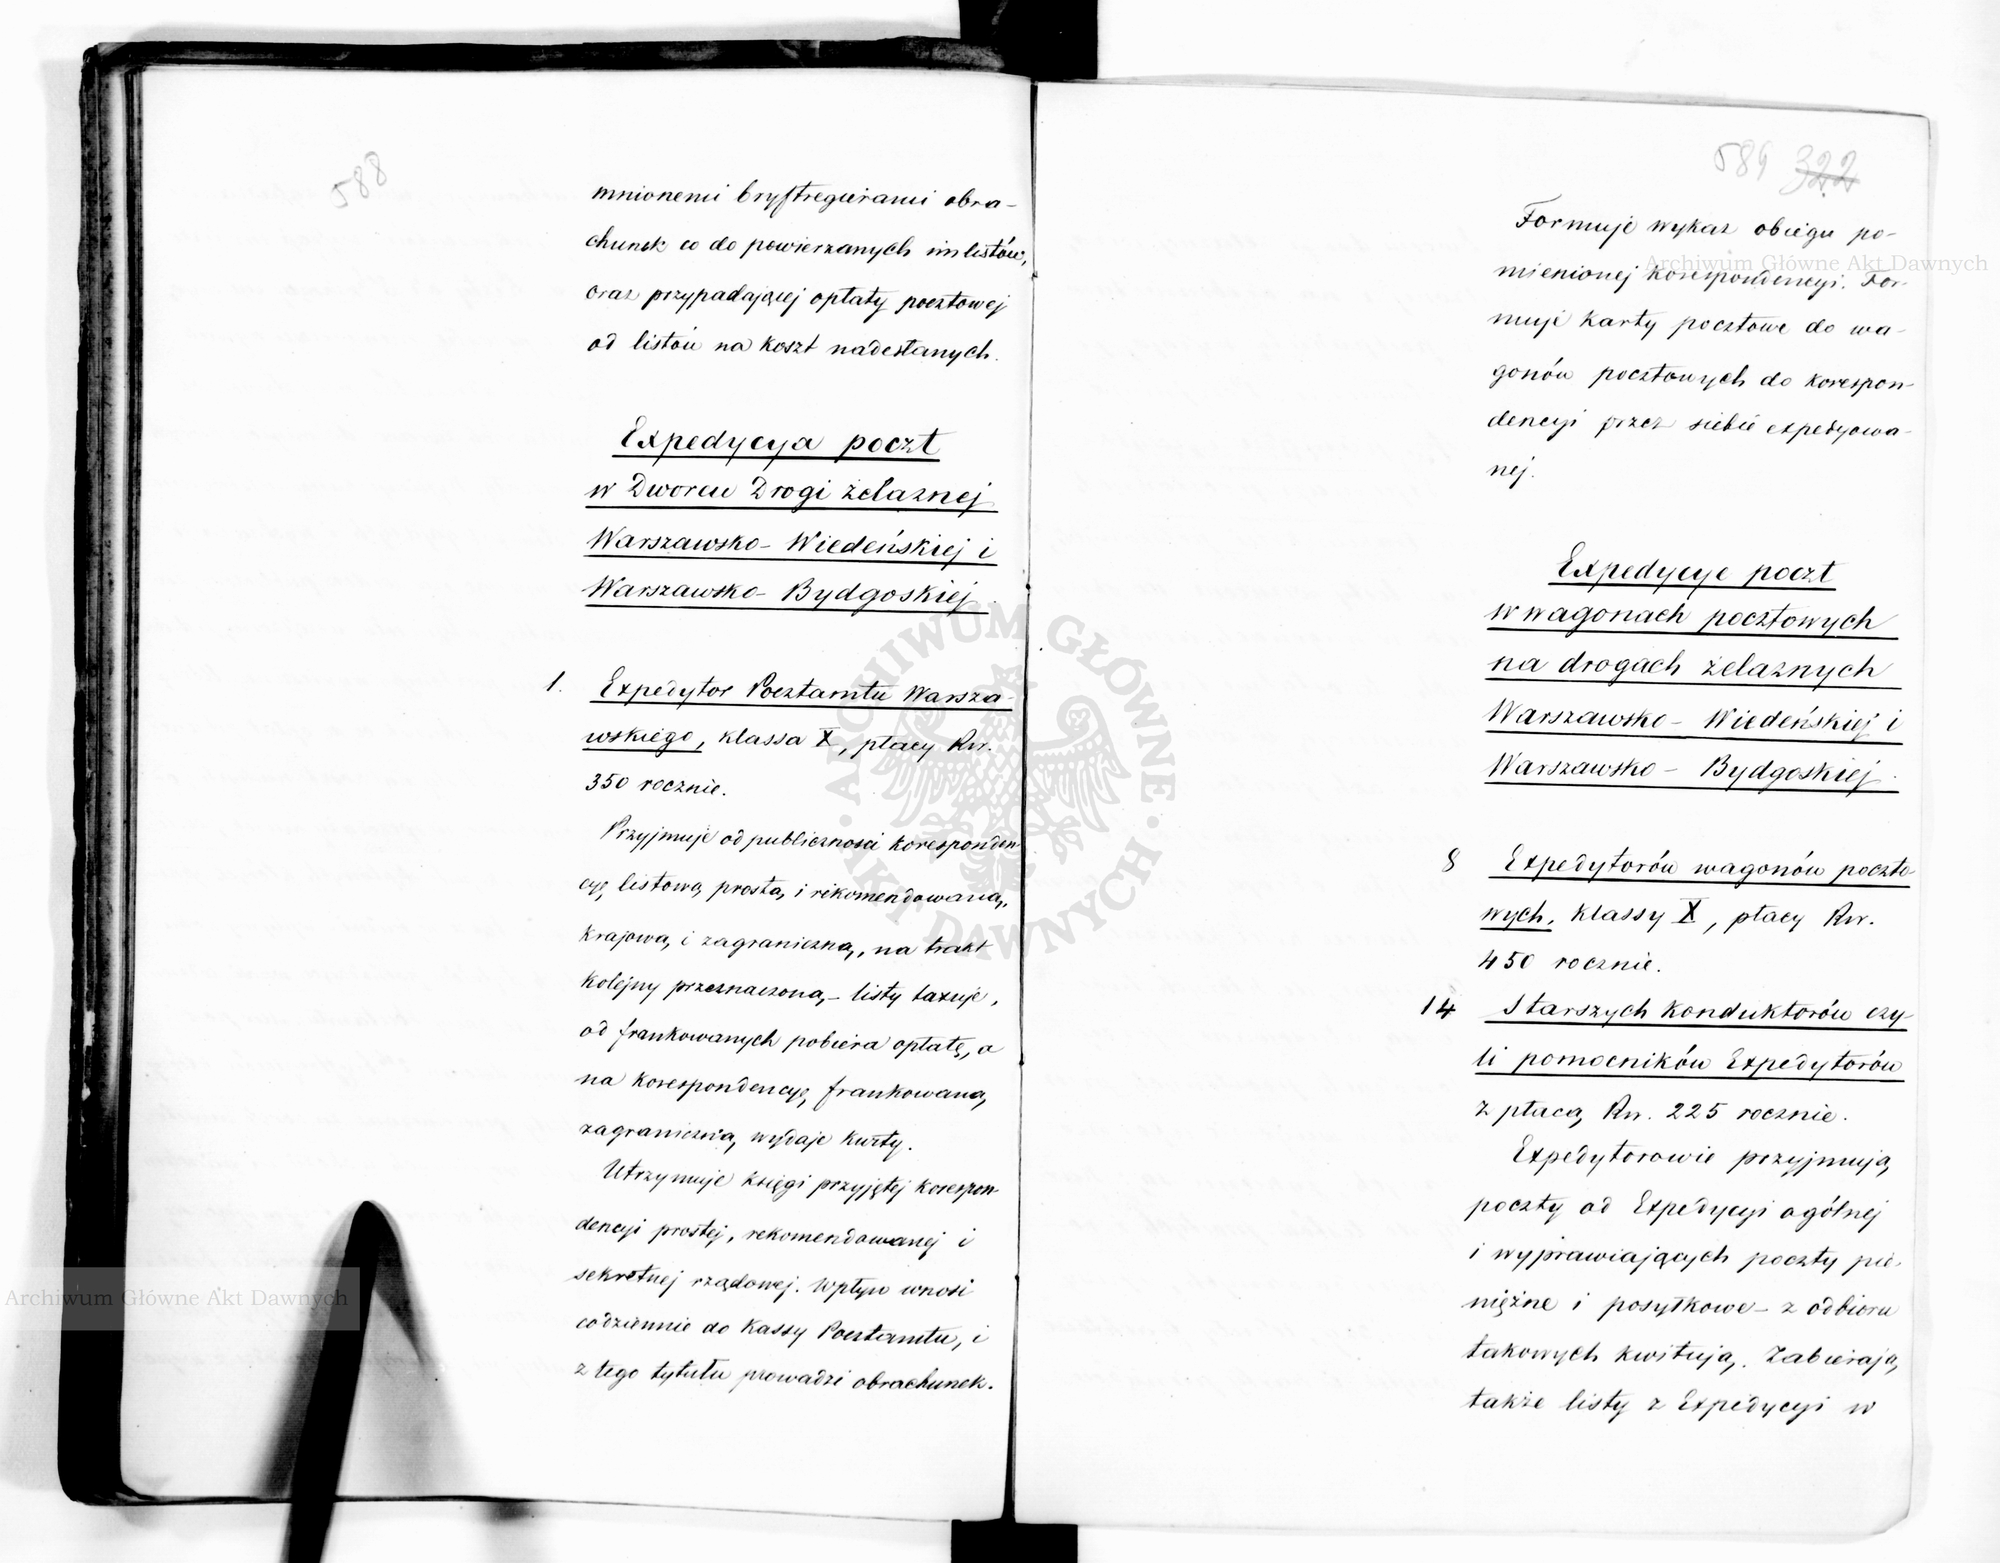 588
mnionemi bryftregierami obra-
chunek co do powierzanych im listów,
oraz przypadającej opłaty pocztowej
od listów na koszt nadesłanych.
Expedycya poczt
w Dworcu Drogi żelaznej
Warszawsko-Wiedeńskiej i
Warszawsko-Bydgoskiej.
1. Expedytor Pocztamtu Warsza-
wskiego, klassa X, płacy Rsr.
350 rocznie.
Przyjmuje od publiczności koresponden
cyę listową prostą i rekomendowaną,
krajową i zagraniczną, na trakt
kolejny przeznaczoną,- listy taxuje,
od frankowanych pobiera opłatę, a
na korespondencyę frankowaną
zagraniczną wydaje kwity.
Utrzymuje księgi przyjętej korespon-
dencyi prostej, rekomendowanej i
sekretnej rządowej. Wpływ wnosi
codziennie do Kassy Pocztamtu, i
z tego tytułu prowadzi obrachunek.
589 322
Formuje wykaz obiegu po-
mienionej korespondencyi. For-
muje karty pocztowe do wa-
gonów pocztowych do korespon-
dencyi przez siebie expedyowa-
nej.
Expedycye poczt
w wagonach pocztowych
na drogach żelaznych
Warszawsko-Wiedeńskiej i
Warszawsko-Bydgoskiej.
8 Expedytorów wagonów poczto-
wych, klassy X, płacy Rsr.
450 rocznie.
14 Starszych Konduktorów czy-
li pomocników Expedytorów
z płacą Rsr. 225 rocznie.
Expedytorowie przyjmują
poczty od Expedycyi ogólnej
i wyprawiających poczty pie-
niężne i posyłkowe- z odbioru
takowych kwitują. Zabierają
także listy z Expedycyi w
Archiwum Główne Akt Dawnych
Archiwum Główne Akt Dawnych
ARCHIWUM GŁÓWNE
AKT DAWNYCH